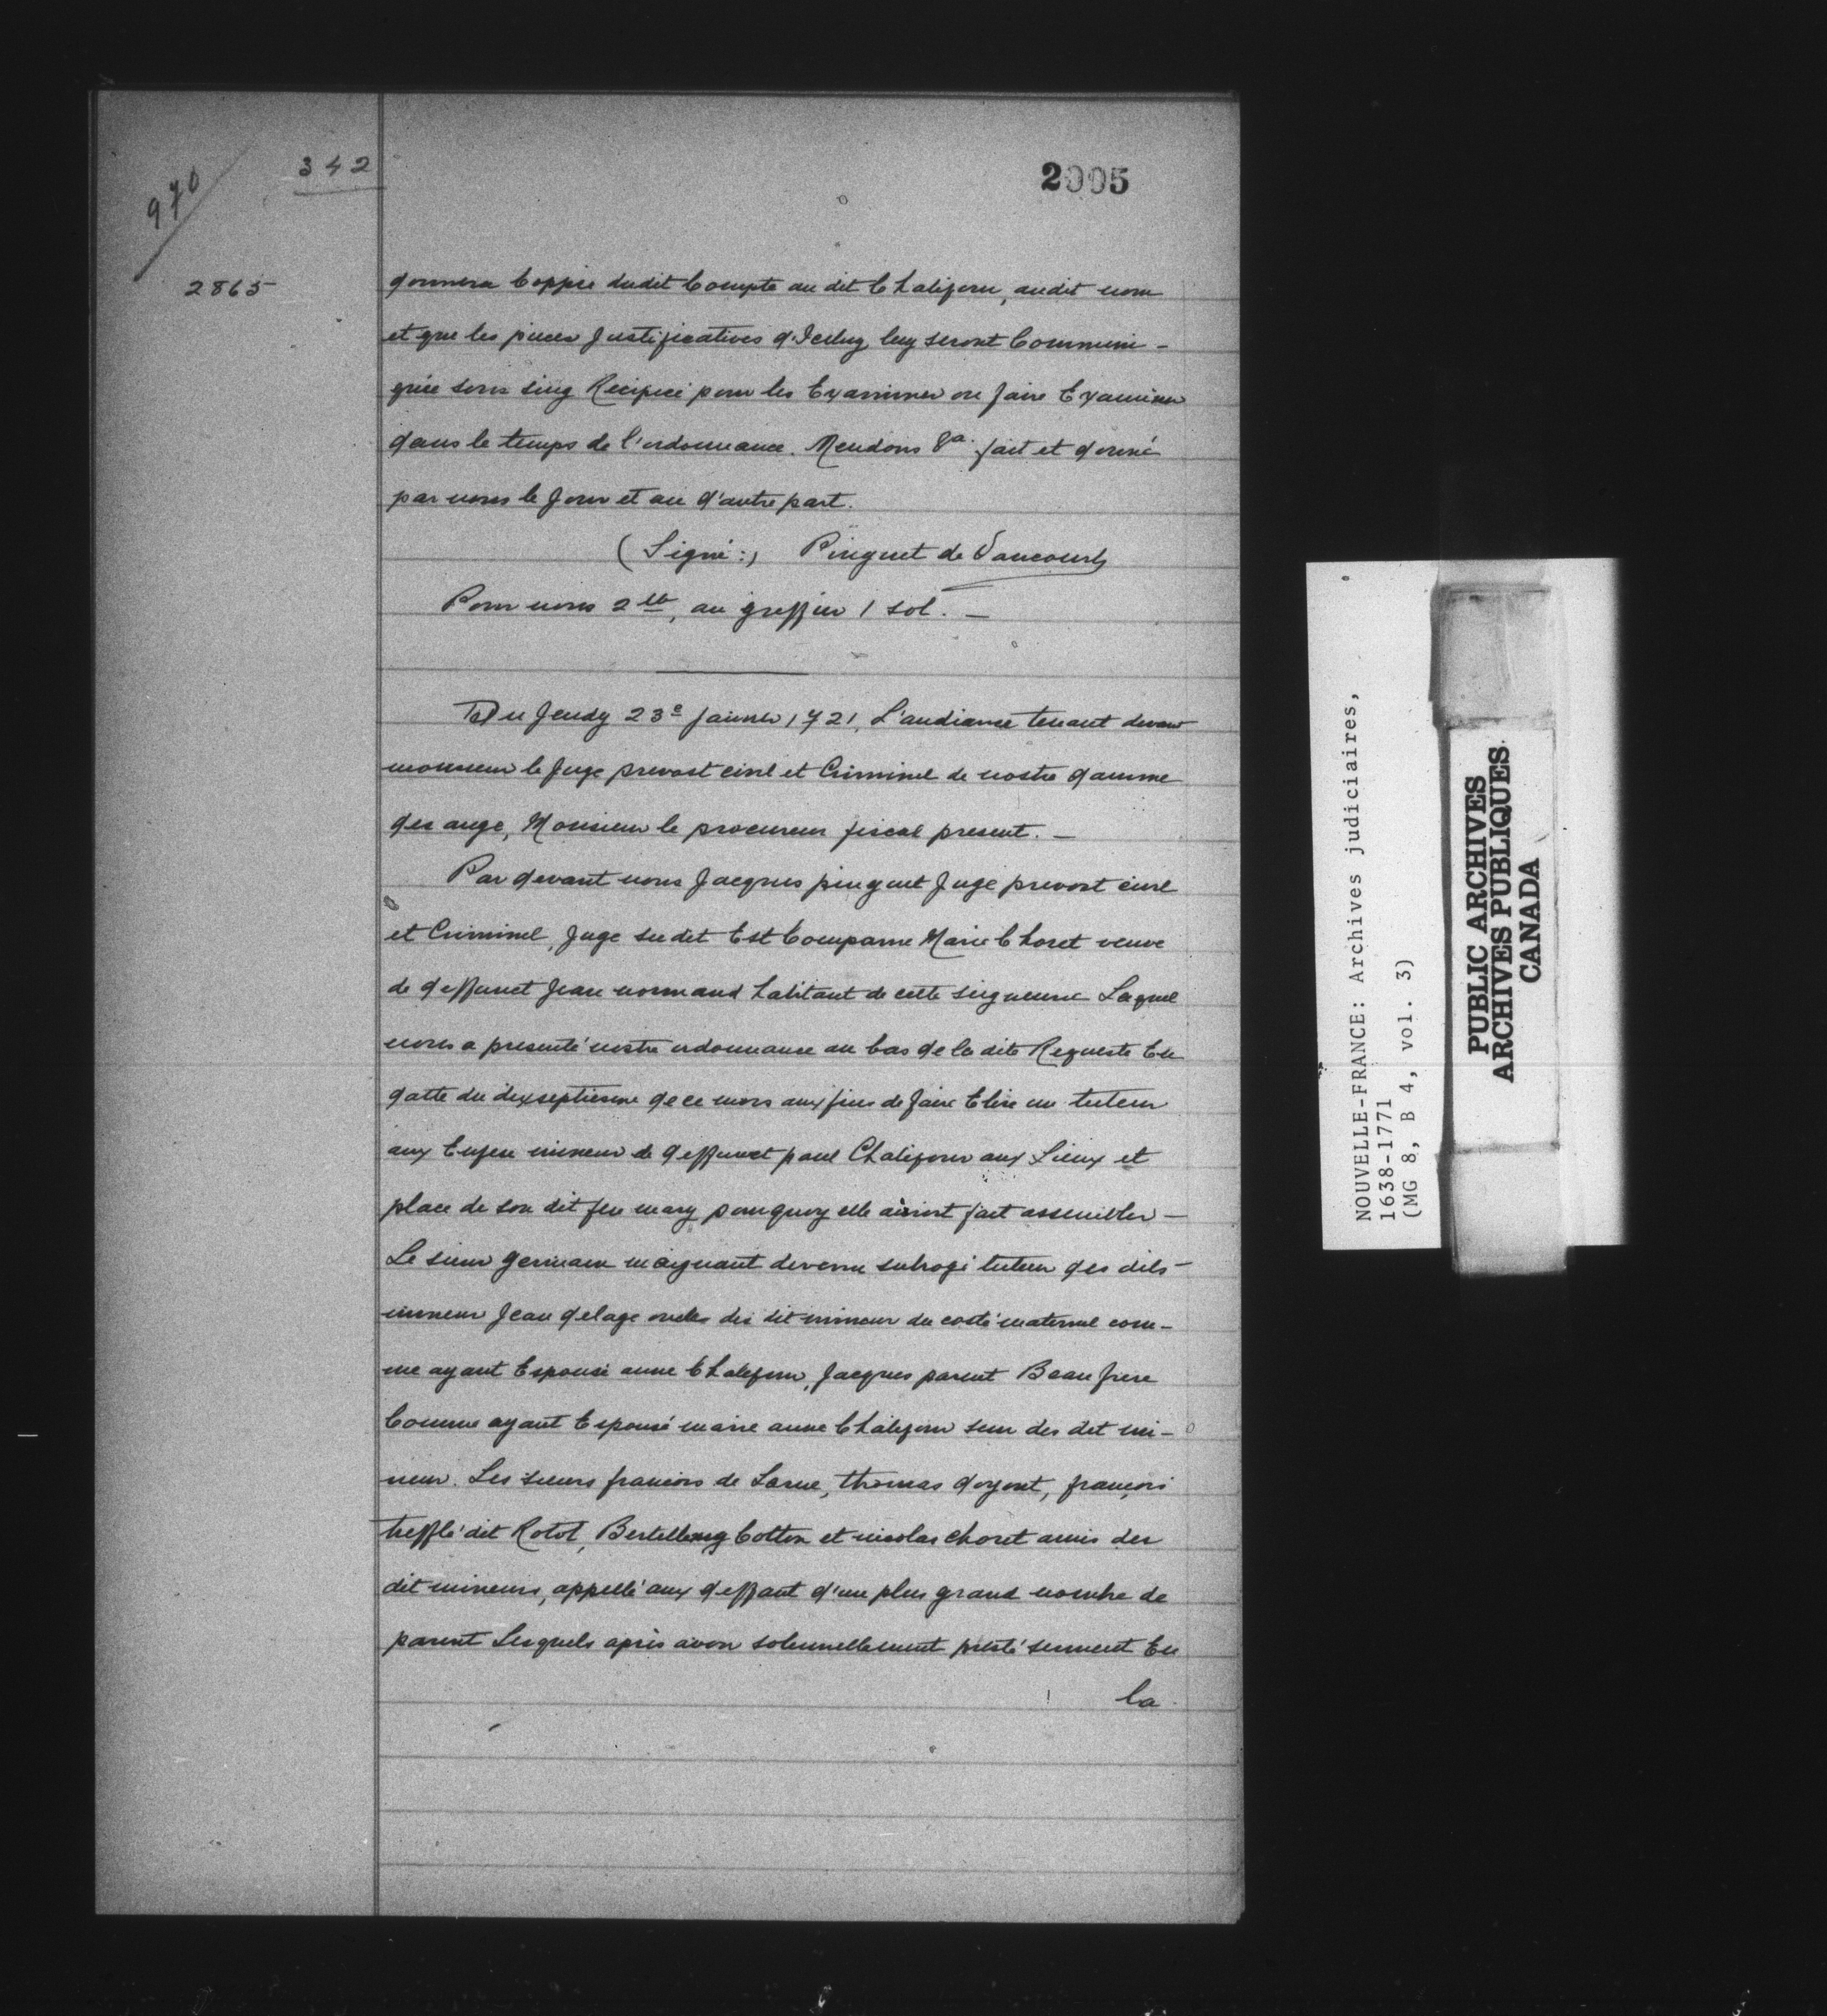 970
342
2005
2865
donnera Coppie dudit Compte au dit Chalifour, audit nom
et que les pieces Justificatives d'Iceluy luy seront Communi-
quée sous sing Recipicé pour les Examiner ou faire Examiner
dans le temps de l'ordonnance. Mendons &a. fait et donné
par nous le Jour et an d'autre part.
(Signé:) Pinguet de Vaucours
Pour nous 2 lt, au greffier 1 sol. —
Du Jeudy 23e janvier 1721, L'audiance tenant devant
monsieur le Juge prevost civil et Criminel de nostre damme
des ange, Monsieur le procureur fiscal present. —
Par devant nous Jacques pinguet Juge prevost civil
et Criminel, Juge sudit Est Comparue Marie Choret veuve
de deffunct Jean normand habitant de cette seigneurie Laquel
nous a presenté nostre ordonnance au bas de la dite Requeste En
datte du dixseptiesme de ce mois aux fins de faire Elire un tuteur
aux Enfens mineur de deffunct paul Chalifour aux Lieux et
place de son dit feu mary pourquoy elle auroit fait assembler —
Le sieur germain maignant devenu subrogé tuteur des dits —
mineur Jean delage oncles des dit mineur du costé maternel com-
me ayant Espousé anne Chalifour, Jacques parent Beau frere
Comme ayant Espousé marie anne Chalifour seur des dit mi-
neur. Les sieurs francois de Larue, thomas doyont, françois
trefflé dit Rotot, Bertellemy Cotton et nicolas choret amis des
dit mineurs, appellé aux deffaut d'un plus grand nombre de
parent Lesquels après avoir solennellement presté serment En
la
NOUVELLE-FRANCE: Archives judiciaires,
1638-1771
(MG 8, B 4, vol. 3)
PUBLIC ARCHIVES
ARCHIVES PUBLIQUES
CANADA